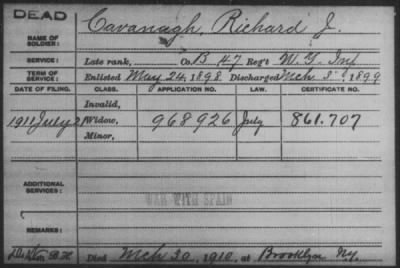 DEAD
NAME OF SOLDIER: Cavanagh, Richard J.
SERVICE: Late rank, Co. B 47 Reg't N.Y. Inf
TERM OF SERVICE: Enlisted May 24, 1898 Discharged Mch 1899
DATE OF FILING. CLASS. APPLICATION NO. LAW. CERTIFICATE NO.
Invalid,
1911 July 21 Widow, 968926 July 861.707
Minor,
ADDITIONAL SERVICES:
WAR WITH SPAIN
REMARKS:
Died Mch 30, 1910, at Brooklyn Ny.